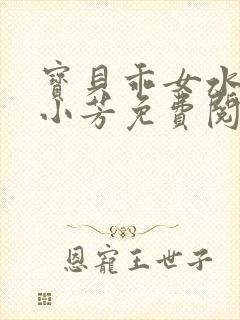 寶貝乖女水
小芳免費閱
恩寵王世子